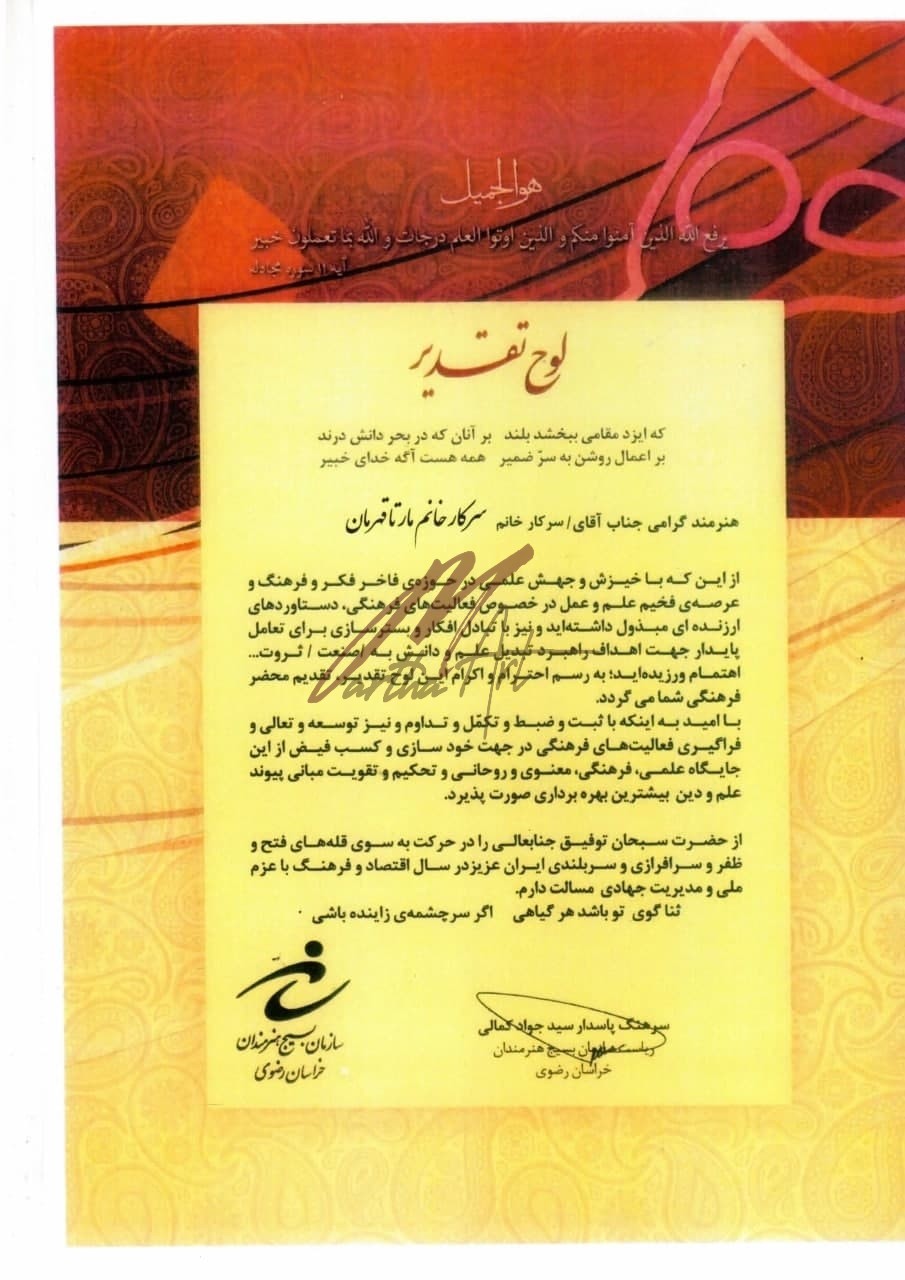 هوالجمیل
یرفع الله الذین آمنوا منکم و الذین اوتوا العلم درجات و الله بما تعملون خبیر
آیه ۱۱ سوره مجادله
لوح تقدیر
که ایزد مقامی ببخشد بلند بر آنان که در بحر دانش درند
بر اعمال روشن به سرّ ضمیر همه هست آگه خدای خبیر
هنرمند گرامی جناب آقای/ سرکار خانم سرکار خانم مارتا قهرمان
از این که با خیزش و جهش علمی در حوزه‌ی فاخر فکر و فرهنگ و
عرصه‌ی فخیم علم و عمل در خصوص فعالیت‌های فرهنگی، دستاوردهای
ارزنده ای مبذول داشته‌اید و نیز با تبادل افکار و بسترسازی برای تعامل
پایدار جهت اهداف راهبرد تبدیل علم و دانش به /صنعت / ثروت...
اهتمام ورزیده‌اید؛ به رسم احترام و اکرام این لوح تقدیر، تقدیم محضر
فرهنگی شما می گردد.
با امید به اینکه با ثبت و ضبط و تکمّل و تداوم و نیز توسعه و تعالی و
فراگیری فعالیت‌های فرهنگی در جهت خود سازی و کسب فیض از این
جایگاه علمی، فرهنگی، معنوی و روحانی و تحکیم و تقویت مبانی پیوند
علم و دین بیشترین بهره برداری صورت پذیرد.
از حضرت سبحان توفیق جنابعالی را در حرکت به سوی قله‌های فتح و
ظفر و سرافرازی و سربلندی ایران عزیزدر سال اقتصاد و فرهنگ با عزم
ملی و مدیریت جهادی مسالت دارم.
ثنا گوی تو باشد هر گیاهی اگر سرچشمه‌ی زاینده باشی
سرهنگ پاسدار سید جواد کمالی
ریاست سازمان بسیج هنرمندان
خراسان رضوی
سازمان بسیج هنرمندان
خراسان رضوی
Martha Art